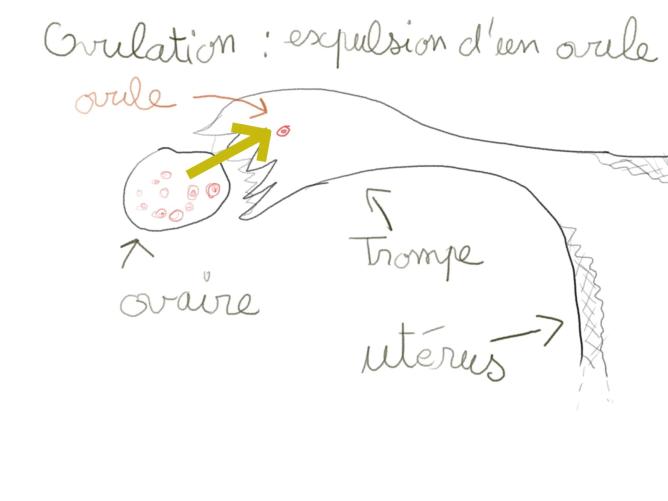 Ovulation : expulsion d'un ovule
ovule
Trompe
ovaire
utérus